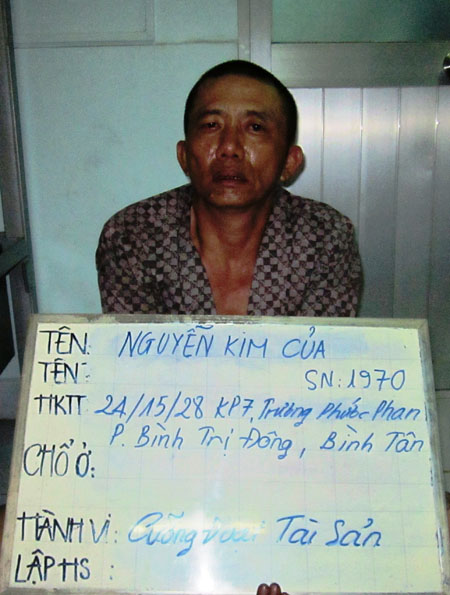 TÊN: NGUYỄN KIM CỦA
TÊN: SN: 1970
HKTT 24/15/28 KP7, Trương Phước Phan
P. Bình Trị Đông, Bình Tân
CHỔ Ở:
HÀNH VI: Cưỡng Đoạt Tài Sản
LẬP HS :